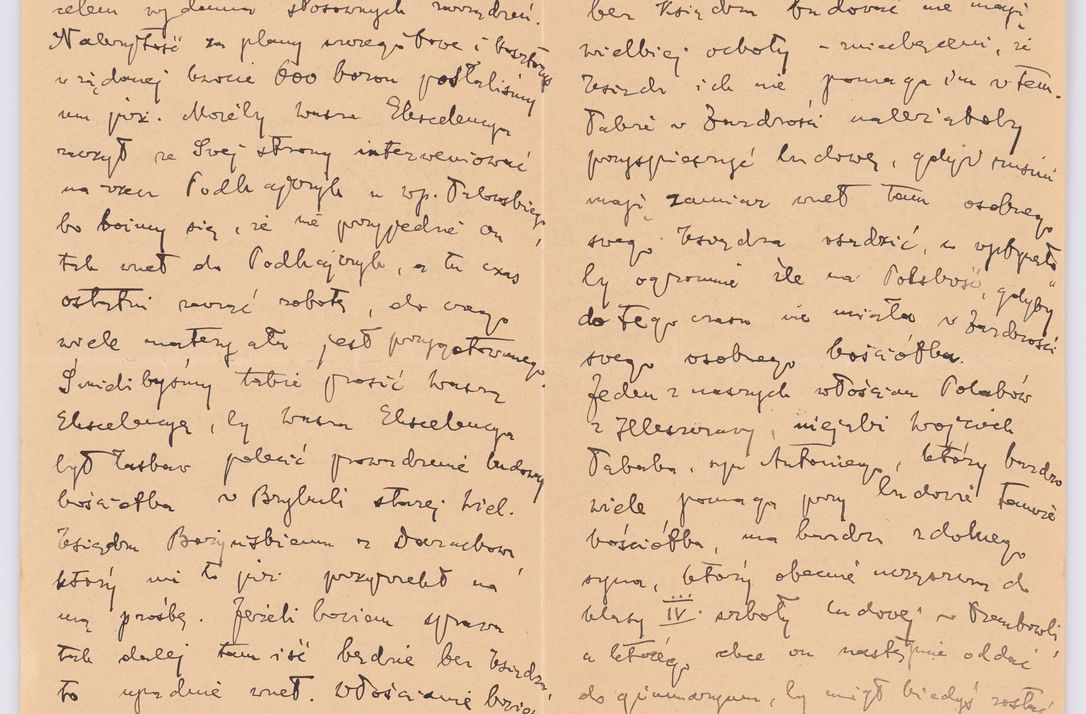 celem wydania stosownych zarządzeń.
Należytość za plany szczegółowe i kosztorys
w żądanej kwocie 600 koron posłaliśmy
mu już. Możeby Wasza Ekscelencya
raczył ze Swej strony interweniować
na rzecz Podhajczyk u wp.
bo boimy się, że nie przyjedzie on
tak wnet do Podhajczyk, a tu czas
ostatni zacząć robotę, do czego
wiele materyału jest przygotowanego.
Śmielibyśmy także prosić Waszą
Ekscelencyę, by Wasza Ekscelencya
był łaskaw polecić prowadzenie budowy
kościółka w Brykuli starej Wiel.
Księdzu z
który mi to już przyrzekł na
mą prośbę. Jeżeli bowiem sprawa
tak dalej tam iść będzie bez Księdza,
to upadnie wnet. Włościanie bowiem
bez Księdza budować nie mają
wielkiej ochoty – zniechęceni, że
Ksiądz ich nie pomaga im w tem.
Także w Zazdrości należałoby
przyspieszyć budowę, gdyż rusini
mają zamiar wnet tam osobnego
swego Księdza osadzić, a wpłynęło
by ogromnie źle na Polskość, gdyby
do tego czasu nie miała w Zazdrości
swego osobnego kościółka.
Jeden z naszych włościan Polaków
z Iłleszczawy, niejaki Wojciech
syn Antoniego, który bardzo
wiele pomaga przy budowie tamże
kościółka, ma bardzo zdolnego
syna, który obecnie uczęszcza do
klasy IV. szkoły ludowej w Trembowli
a którego chce on następnie oddać
do gimnazyum, by mógł kiedyś zostać